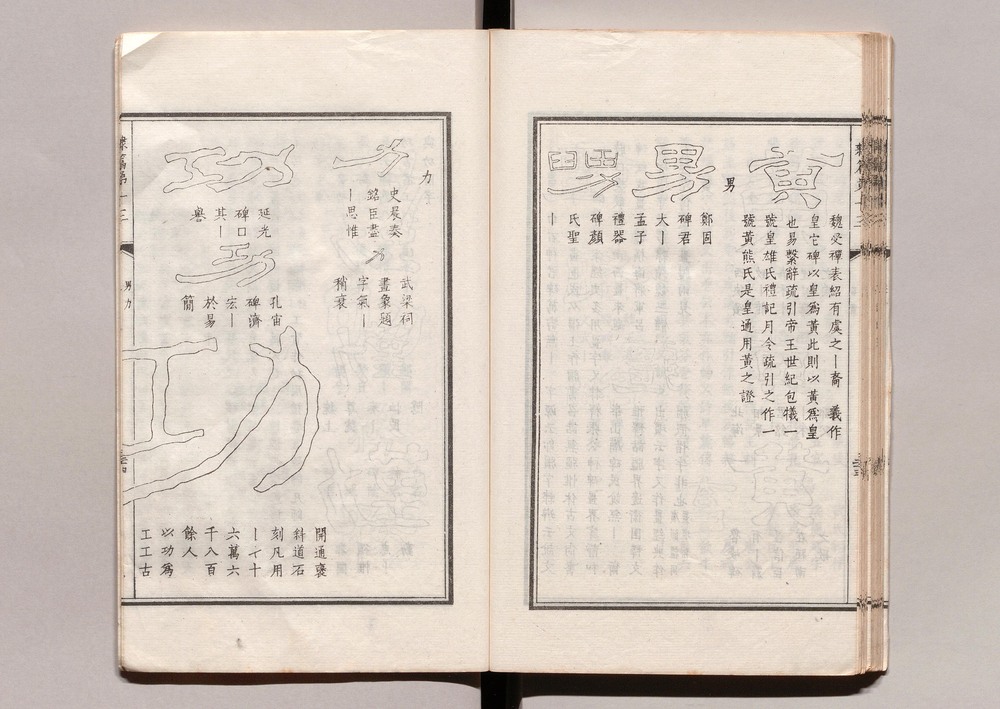 黃
魏受禪表紹有虞之丨裔 義作
皇它碑以皇爲黃此則以黃爲皇
也易繫辭疏引帝王世紀包犧一
號皇雄氏禮記月令疏引之作一
號黃熊氏是皇通用黃之證
男
男
鄭固
碑君
大丨
孟子
男
禮器
碑顏
氏聖
丨
力
力
史晨奏
銘臣盡
丨思惟
力
武梁祠
畫象題
字氣丨
稍衰
功
延光
碑口
其丨
譽
功
孔宙
碑濟
宏丨
於易
簡
功
開通襃
斜道石
刻凡用
丨十
六萬六
千八百
餘人
以功爲
工工古
男力